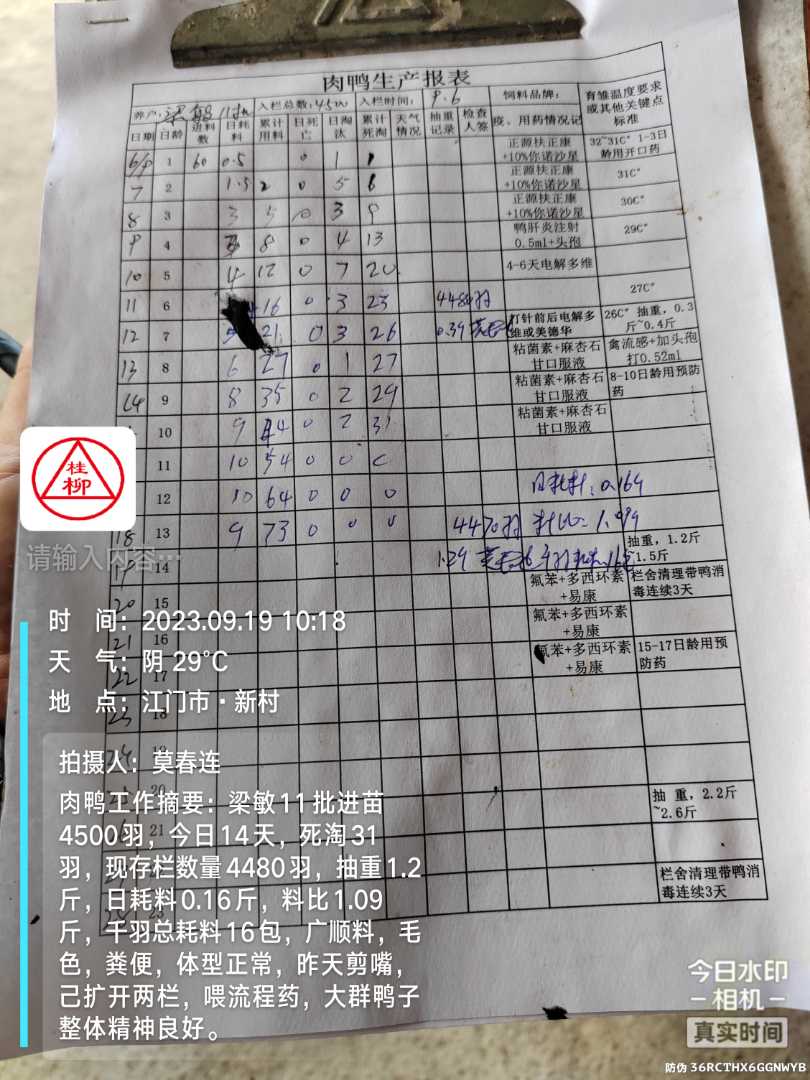 肉鸭生产报表
养户: 梁敏11批 入栏总数: 4500 入栏时间: 9.6 饲料品牌: 育雏温度要求或其他关键点标准
日期 日龄 进料数 日耗料 累计用料 日死亡 日淘汰 累计死淘 天气情况 抽重记录 检查人签 疫、用药情况记
6/9 1 60 0.5 0 1 1 正源扶正康+10%你诺沙星 32~31C° 1-3日龄用开口药
7 2 1.5 2 0 5 6 正源扶正康+10%你诺沙星 31C°
8 3 3 5 0 3 9 正源扶正康+10%你诺沙星 30C°
9 4 3 8 0 4 13 鸭肝炎注射0.5ml+头孢 29C°
10 5 4 12 0 7 20 4-6天电解多维
11 6 16 0 3 23 4480羽 27C°
12 7 5 21 0 3 26 0.39 打针前后电解多维或美德华 26C° 抽重，0.3斤~0.4斤
13 8 6 27 0 1 27 粘菌素+麻杏石甘口服液 禽流感+加头孢打0.52ml
14 9 8 35 0 2 29 粘菌素+麻杏石甘口服液 8-10日龄用预防药
10 9 44 0 2 31 粘菌素+麻杏石甘口服液
11 10 54 0 0 0
12 10 64 0 0 0 日耗料: 0.169
18 13 9 73 0 0 0 4470羽 料比: 1.099
19 14 1.29 抽重，1.2斤~1.5斤
20 15 氟苯+多西环素+易康 栏舍清理带鸭消毒连续3天
21 16 氟苯+多西环素+易康
22 17 氟苯+多西环素+易康 15-17日龄用预防药
23 18
24 19
20
21 抽 重，2.2斤~2.6斤
23 栏舍清理带鸭消毒连续3天
桂柳
请输入内容…
时 间：2023.09.19 10:18
天 气：阴 29℃
地 点：江门市·新村
拍摄人：莫春连
肉鸭工作摘要：梁敏11批进苗
4500羽，今日14天，死淘31
羽，现存栏数量4480羽，抽重1.2
斤，日耗料0.16斤，料比1.09
斤，千羽总耗料16包，广顺料，毛
色，粪便，体型正常，昨天剪嘴，
己扩开两栏，喂流程药，大群鸭子
整体精神良好。
今日水印
相机
真实时间
防伪 36RCTHX6GGNWYB